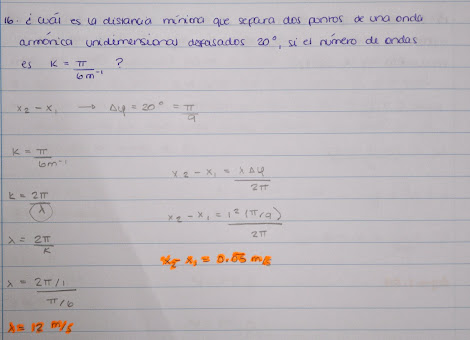 16. ¿ cuál es la distancia mínima que separa dos puntos de una onda
armónica unidimensional desfasados 20°, si el número de ondas
es K = π/6m⁻¹ ?
x₂ - x₁ → Δφ = 20° = π/9
K = π/6m⁻¹
K = 2π/λ
λ = 2π/K
λ = 2π/1 / π/6
λ = 12 m/s
x₂ - x₁ = λ Δφ / 2π
x₂ - x₁ = 12 (π/9) / 2π
x₂ - x₁ =